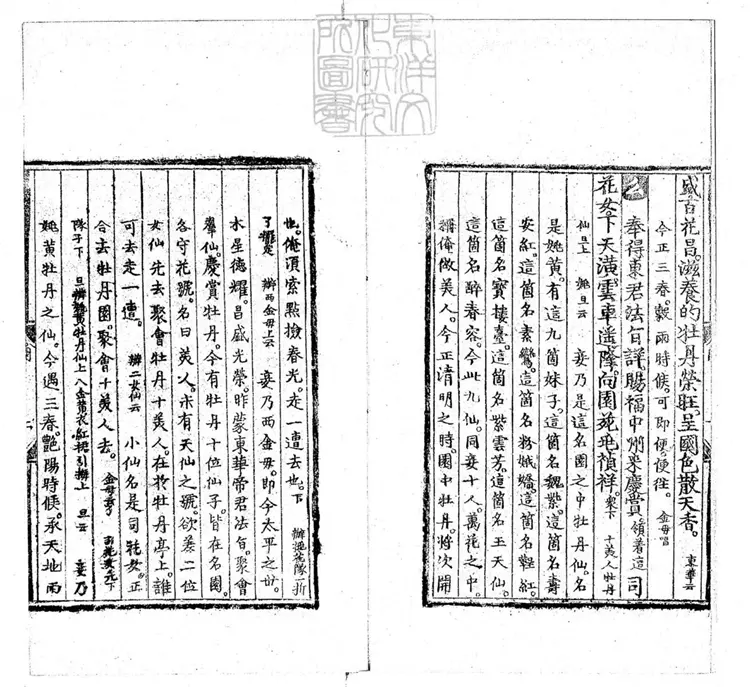 東洋文化研究所圖書
盛百花昌。滋養的牡丹榮旺。呈國色散天香。東華云
今正三春。穀雨時候。可即便便往。金母唱
奉得東君法旨詳。賜福中州來慶賞領著這司
花女下天潢雲車遥降向園苑晃禎祥。衆下 十美人牡丹
仙旦上 姚旦云 妾乃是這名園之中牡丹仙。名
是姚黃。有這九箇妹子。這箇名魏紫。這箇名壽
安紅。這箇名素鸞。這箇名粉娥嬌。這箇名鞓紅。
這箇名寶樓臺。這箇名紫雲芳。這箇名玉天仙。
這箇名醉春容。今此九仙。同妾十人。萬花之中。
獨俺做美人。今正清明之時。園中牡丹。將次開
也。俺須索點撿春光。走一遭去也。下 辦迎花隊一折
了擺定 辦西金母上云 妾乃西金母。即今太平之世。
木星德耀。昌盛光榮。昨蒙東華帝君法旨。聚會
羣仙。慶賞牡丹。今有牡丹十位仙子。皆在名園。
各守花號。名曰美人。未有天仙之號。欲差二位
女仙先去聚會牡丹十美人。在於牡丹亭上。誰
可去走一遭。 辦二女仙云 小仙名是司花女。正
合去牡丹園。聚會十美人去。 金母云了 下
隊子下 旦辦 牡丹仙上 八金黃衣紅裙引辦上 旦云 妾乃
姚黃牡丹之仙。今遇三春。艷陽時候。承天地雨